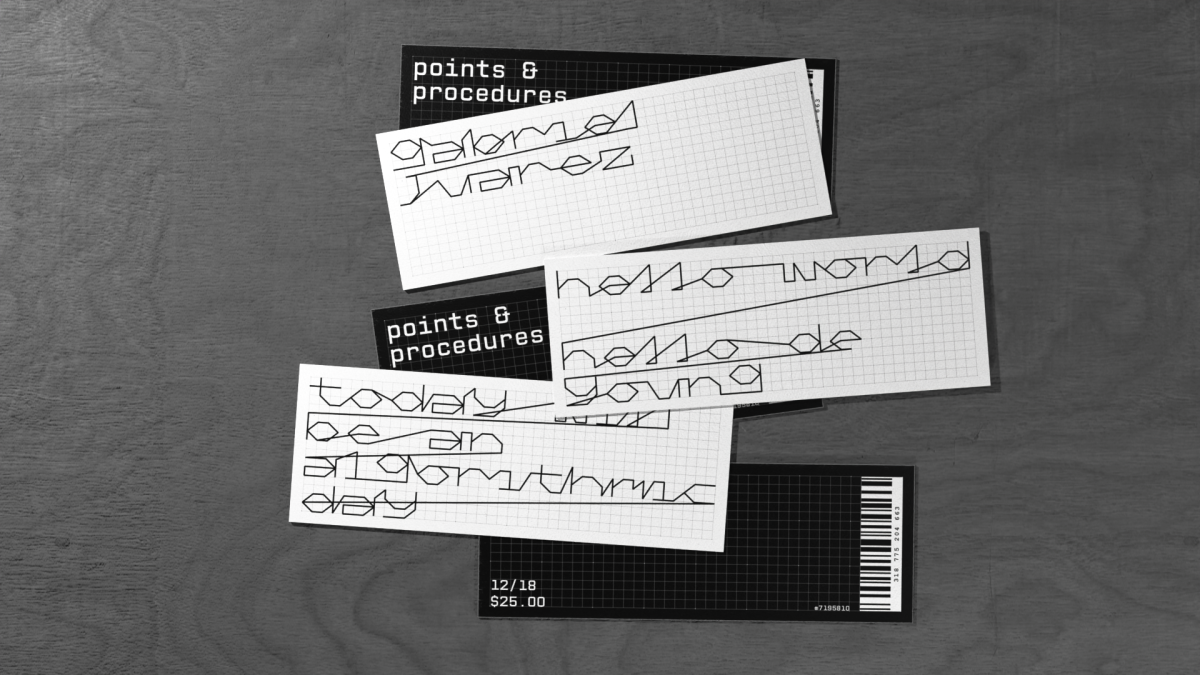 points &
procedures
gabriel
juarez
hello world
hello de
young
points &
procedures
today
be an
algorithmic
day
12/18
$25.00
#7195810
318 775 204 663